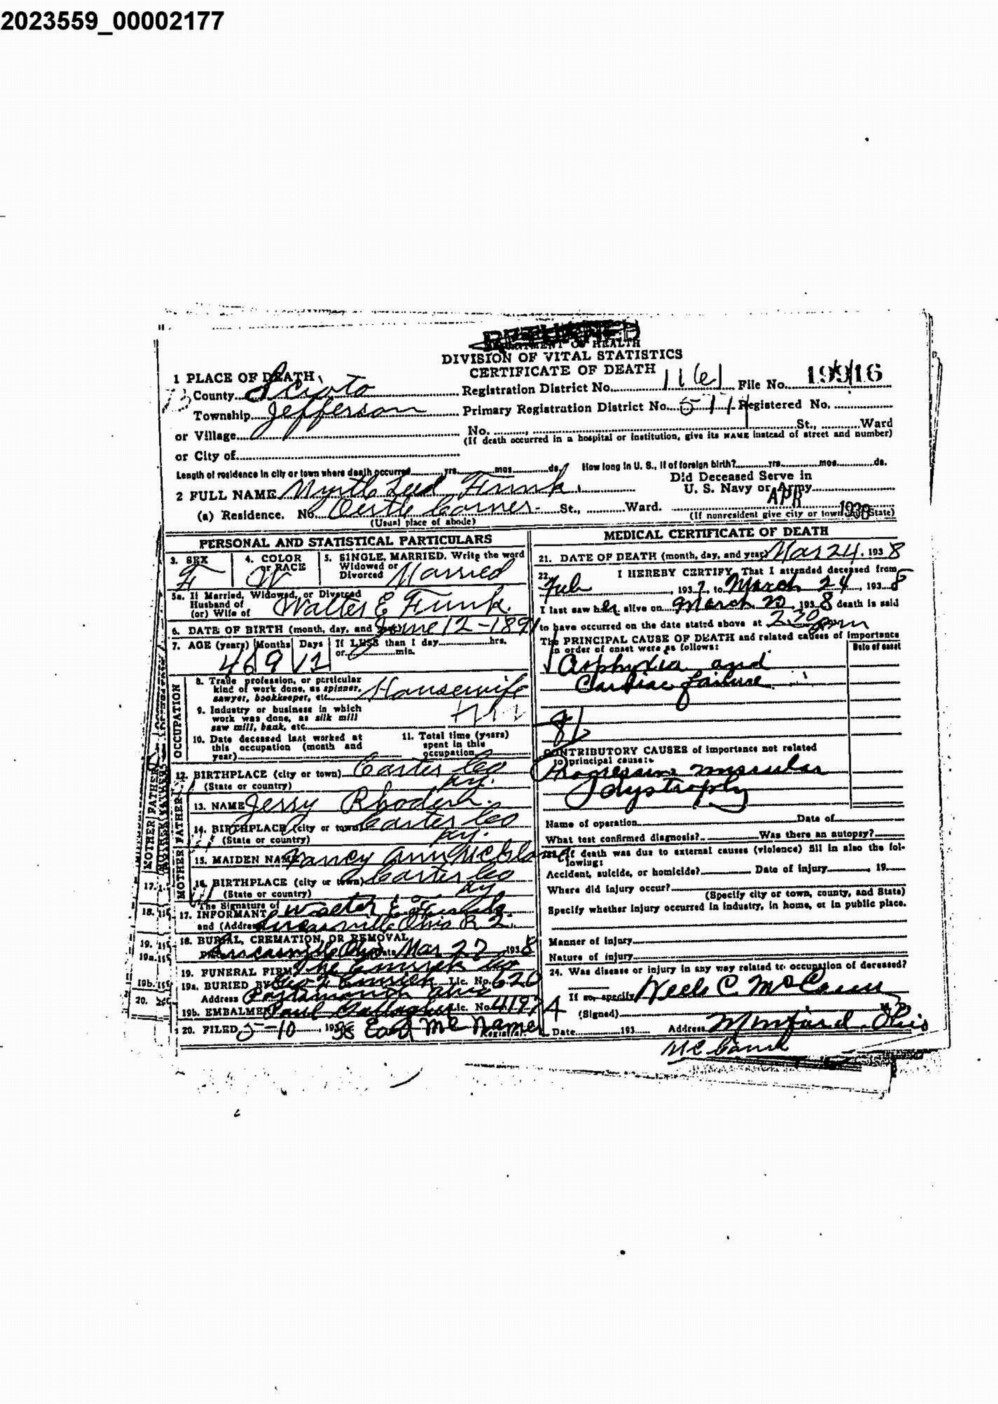 2023559_00002177
RETURNED
DEPARTMENT OF HEALTH
DIVISION OF VITAL STATISTICS
CERTIFICATE OF DEATH
1 PLACE OF DEATH
County Scioto Registration District No. File No.
Township Jefferson Primary Registration District No. Registered No.
or Village No. St., Ward
(If death occurred in a hospital or institution, give its NAME instead of street and number)
or City of
Length of residence in city or town where death occurred yrs. mos. ds. How long in U. S., if of foreign birth? yrs. mos. ds.
Did Deceased Serve in
2 FULL NAME Funk U. S. Navy or Army
APR 1938
(a) Residence. No. Corner St., Ward.
(Usual place of abode) (If nonresident give city or town and State)
PERSONAL AND STATISTICAL PARTICULARS
3. SEX 4. COLOR or RACE W 5. SINGLE, MARRIED. Write the word Widowed or Divorced Married
5a. If Married, Widowed, or Divorced
Husband of
(or) Wife of Walter E Funk.
6. DATE OF BIRTH (month, day, and year) June 12-1891
7. AGE (years) Months Days If LESS than 1 day hrs.
or min.
46 9 12
OCCUPATION
8. Trade profession, or particular
kind of work done, as spinner,
sawyer, bookkeeper, etc. Housewife
9. Industry or business in which
work was done, as silk mill
saw mill, bank, etc.
10. Date deceased last worked at
this occupation (month and
year)
11. Total time (years)
spent in this
occupation
12. BIRTHPLACE (city or town) Carter Co
(State or country) Ky.
FATHER
13. NAME Jerry
14. BIRTHPLACE (city or town) Carter Co
(State or country) Ky.
MOTHER
15. MAIDEN NAME Nancy Ann
16. BIRTHPLACE (city or town) Carter Co
(State or country) Ky
The Signature of
17. INFORMANT Walter E Funk
and (Address)
18. BURIAL, CREMATION, OR REMOVAL
Date Mar 1938
19. FUNERAL FIRM
19a. BURIED BY Lic. No. 620
Address Portsmouth Ohio
19b. EMBALMER Paul Lic. No.
20. FILED 5-10 1938 Registrar
MEDICAL CERTIFICATE OF DEATH
21. DATE OF DEATH (month, day, and year) Mar 24. 1938
22. I HEREBY CERTIFY, That I attended deceased from
Feb , 1937, to March 24 , 1938
I last saw her alive on March 1938 death is said
to have occurred on the date stated above at pm
The PRINCIPAL CAUSE OF DEATH and related causes of importance
in order of onset were as follows: Date of onset
Asphyxia and
Cardiac failure
CONTRIBUTORY CAUSES of importance not related
to principal cause:
Progressive muscular
dystrophy
Name of operation Date of
What test confirmed diagnosis? Was there an autopsy?
If death was due to external causes (violence) fill in also the fol-
lowing:
Accident, suicide, or homicide? Date of injury 19
Where did injury occur?
(Specify city or town, county, and State)
Specify whether injury occurred in industry, in home, or in public place.
Manner of injury
Nature of injury
24. Was disease or injury in any way related to occupation of deceased?
If so, specify
(Signed)
Date 193 Address Minford Ohio